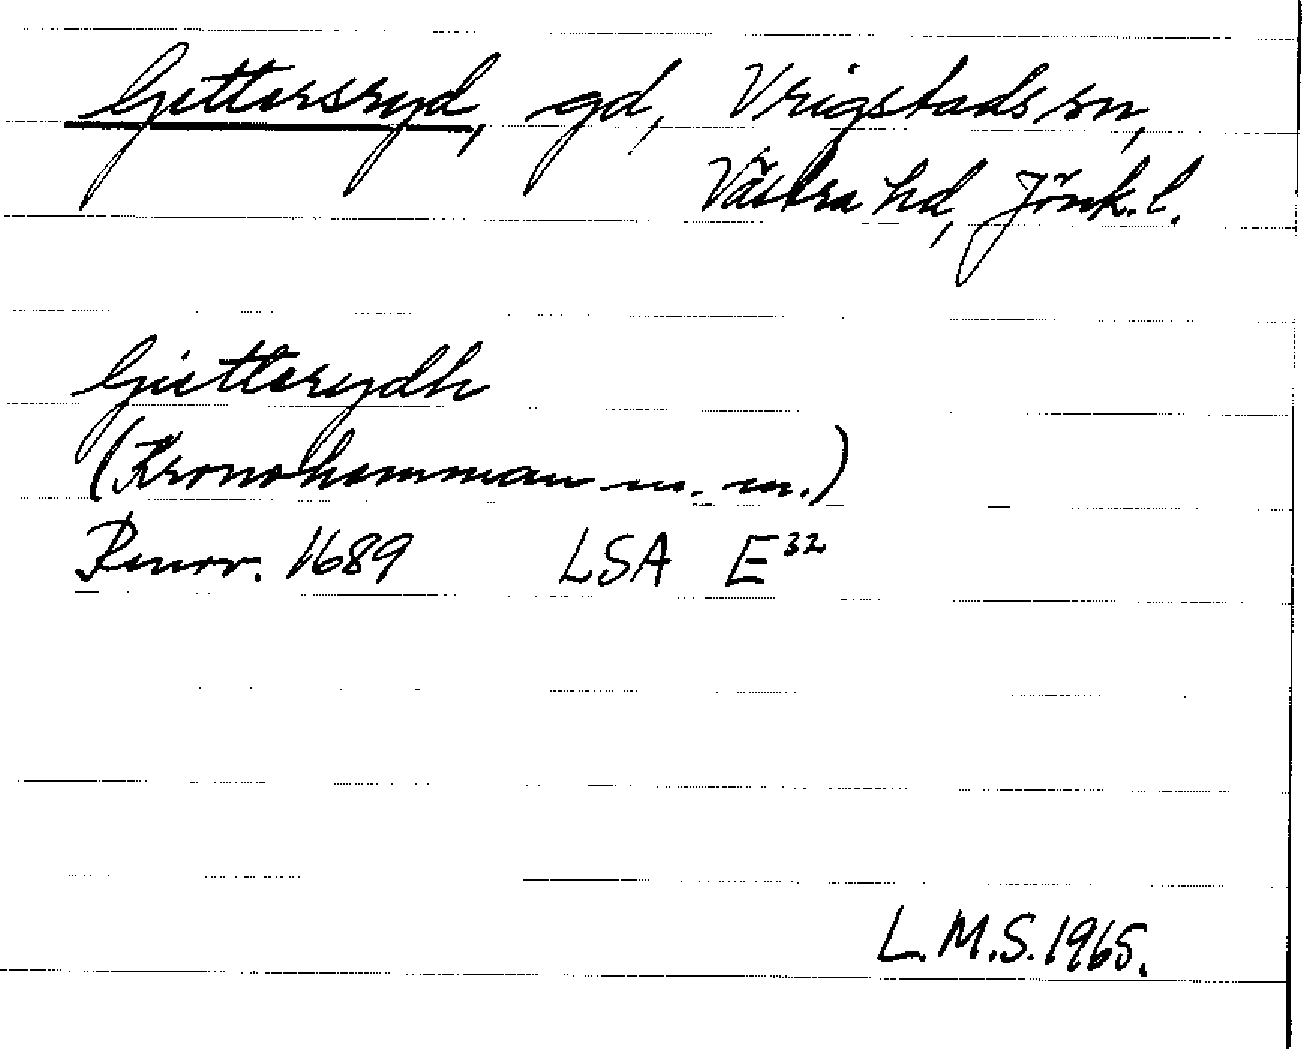 Gettersryd, gd, Vrigstads sn,
Västra hd, Jönk. l.
Gietterrydh
(Kronohemman m. m.)
Renov. 1689 LSA E³²
L.M.S. 1965.